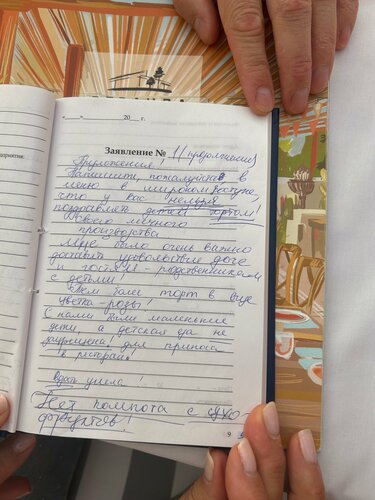 "___"________ 20___ г.
Заявление № 1 (продолжение)
Приложения!
Напишите, пожалуйста в
меню в широком доступе,
что у вас нельзя
поздравлять детей тортом!
своего личного
производства
Мне было очень важно
доставить удовольствие доче
и гостям - родственникам
с детьми!
Тем более торт в виде
цветка - розы!
С нами были маленькие
дети, а детская еда не
для приноса
в ресторан!
ушла!
Нет компота с сухо-
фруктов!
9